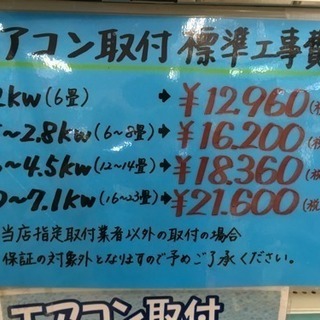 エアコン取付 標準工事費
2kw(6畳)→¥12,960(税
~2.8kw(6~8畳)→¥16,200(税
~4.5kw(12~14畳)→¥18,360(税
0~7.1kw(16~23畳)→¥21,600(税
当店指定取付業者以外の取付の場合
保証の対象外となりますので予めご了承ください。
エアコン取付